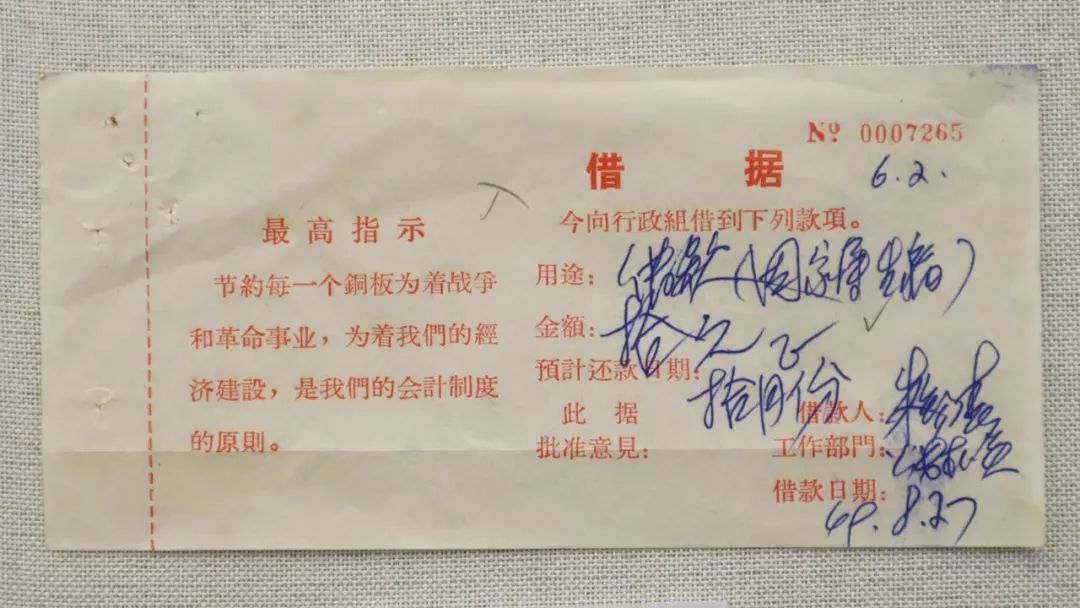 № 0007265
借据
6.2.
最高指示
节約每一个銅板为着战爭
和革命事业，为着我們的經
济建設，是我們的会計制度
的原則。
今向行政組借到下列款項。
用途：
金額：拾元正
預計还款日期：拾月份
此据
借款人：
批准意見：
工作部門：
借款日期：69.8.27